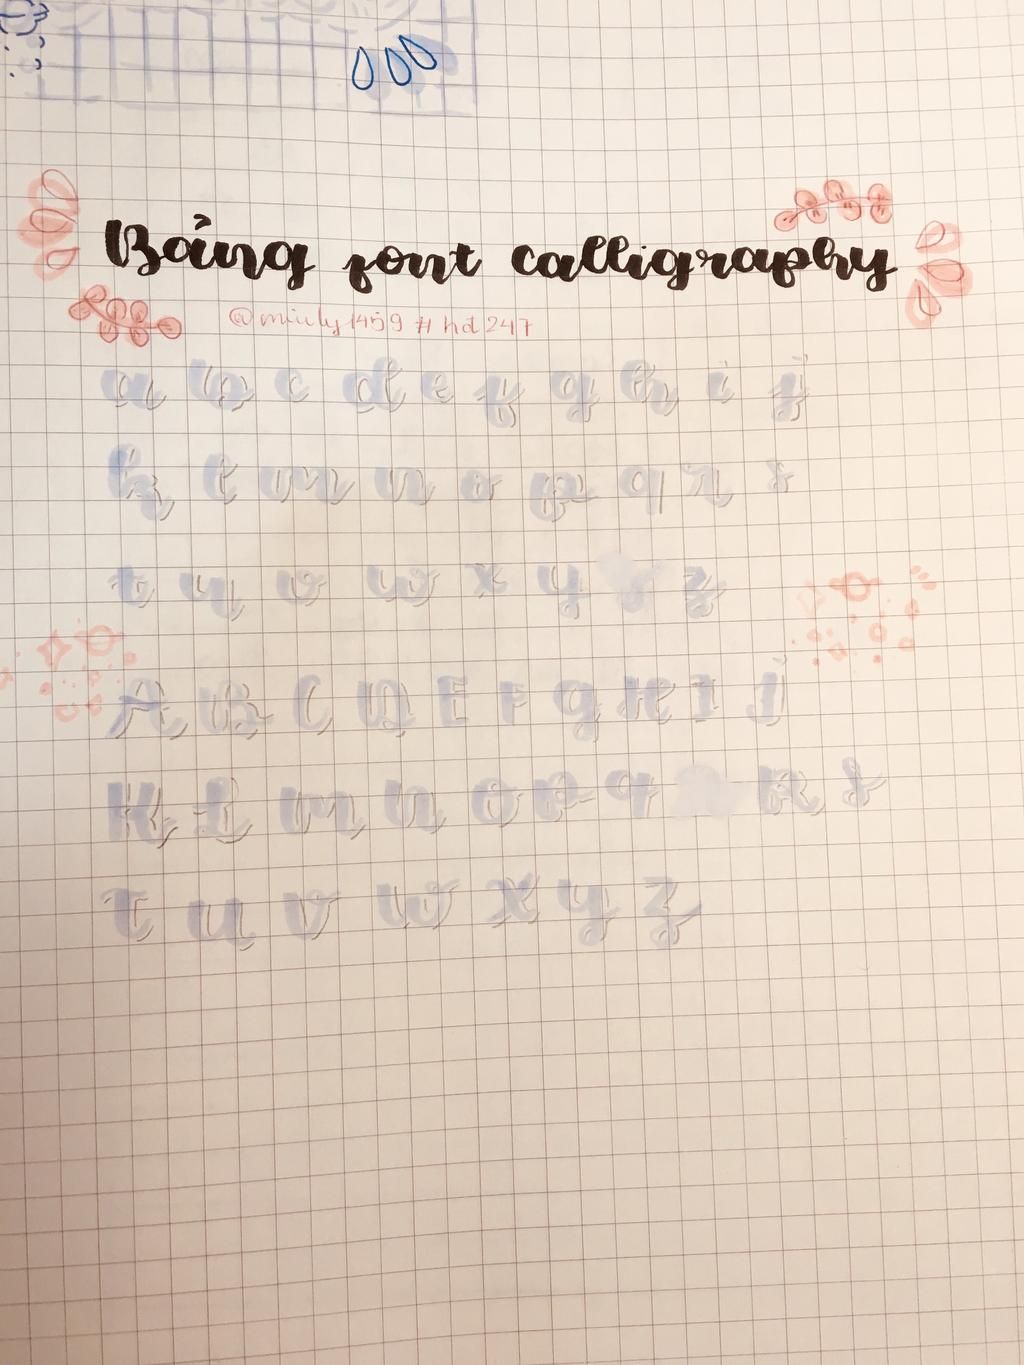 Bảng font calligraphy
@miuly1459 # hd247
a b c d e f g h i j
k l m n o p q r s
t u v w x y z
A B C D E F G H I J
K L M N O P Q R S
T U V W X Y Z